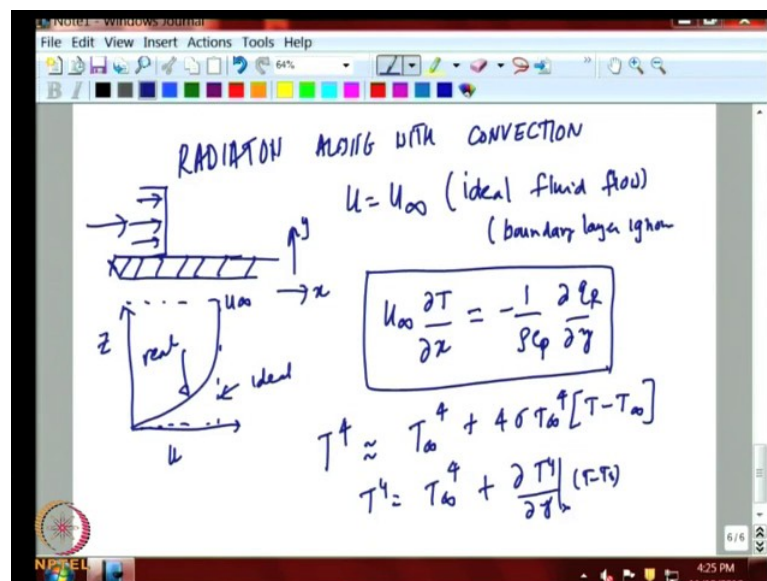 Note1 - Windows Journal
File Edit View Insert Actions Tools Help
64%
B I
RADIATON ALONG WITH CONVECTION
u = u∞ (ideal fluid flow)
(boundary layer ignor
y
x
u∞ ∂T/∂x = -1/ρCp ∂qR/∂y
Z
u∞
real
ideal
u
T⁴ ≈ T∞⁴ + 4σT∞⁴ [T-T∞]
T⁴ = T∞⁴ + ∂T⁴/∂y|∞ (T-T∞)
6/6
NPTEL
4:25 PM